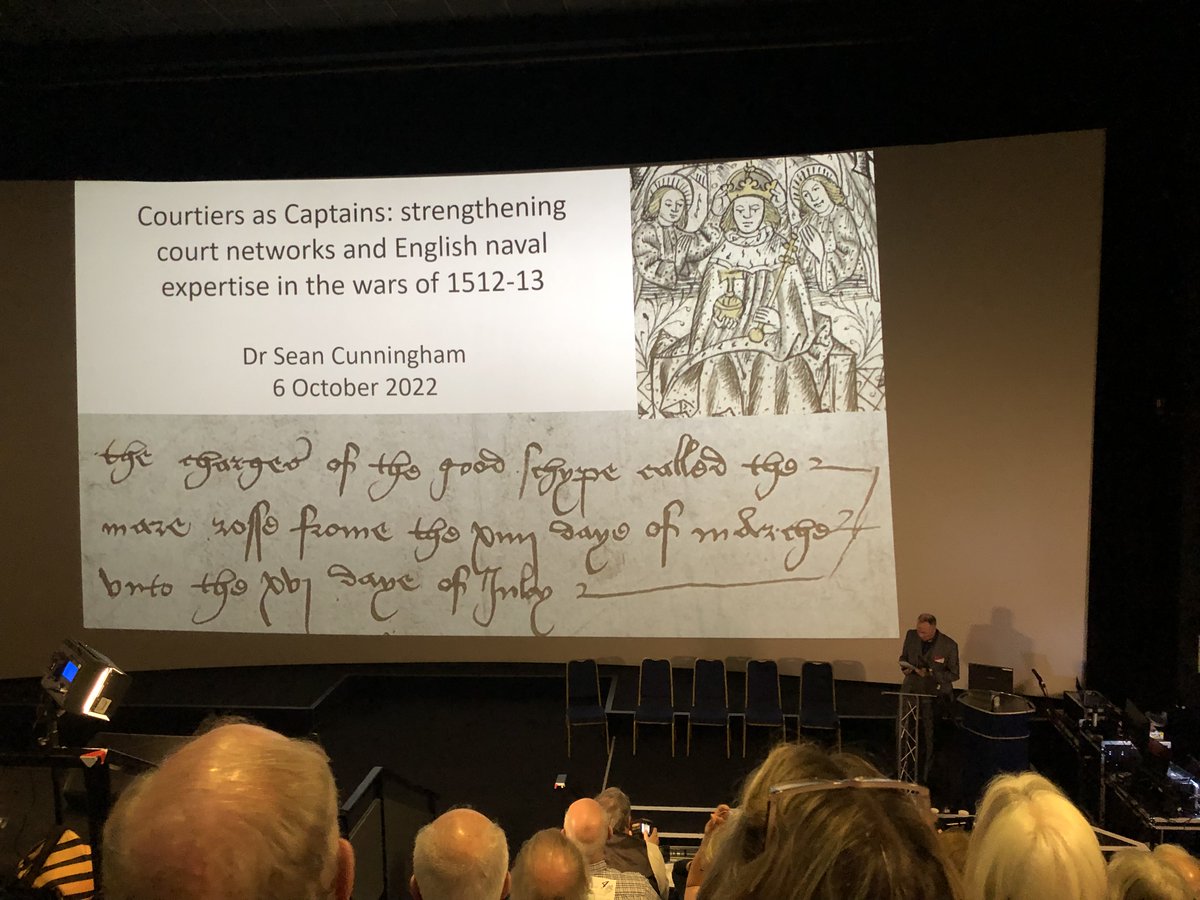 Courtiers as Captains: strengthening
court networks and English naval
expertise in the wars of 1512-13
Dr Sean Cunningham
6 October 2022
the charges of the good schype called the
mare rosse frome the xiiij daye of marche
vnto the xvj daye of July